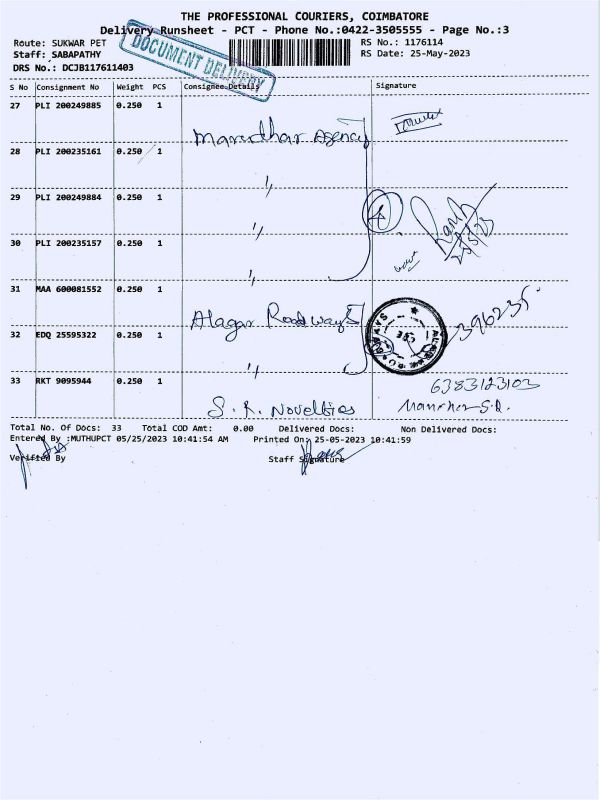 THE PROFESSIONAL COURIERS, COIMBATORE
Delivery Runsheet - PCT - Phone No.:0422-3505555 - Page No.:3
Route: SUKWAR PET
RS No.: 1176114
Staff: SABAPATHY
RS Date: 25-May-2023
DRS No.: DCJB117611403
DOCUMENT DELIVERY
S No Consignment No Weight PCS Consignee Details Signature
27 PLI 200249885 0.250 1
Marudhar Agency
28 PLI 200235161 0.250 1
"
29 PLI 200249884 0.250 1
4
"
30 PLI 200235157 0.250 1
25/5/23
"
31 MAA 600081552 0.250 1
Alagar Roadways
396235
32 EDQ 25595322 0.250 1
"
33 RKT 9095944 0.250 1
6383123103
S. R. Novelties
Total No. Of Docs: 33 Total COD Amt: 0.00 Delivered Docs: Non Delivered Docs:
Entered By :MUTHUPCT 05/25/2023 10:41:54 AM Printed On: 25-05-2023 10:41:59
Verified By Staff Signature